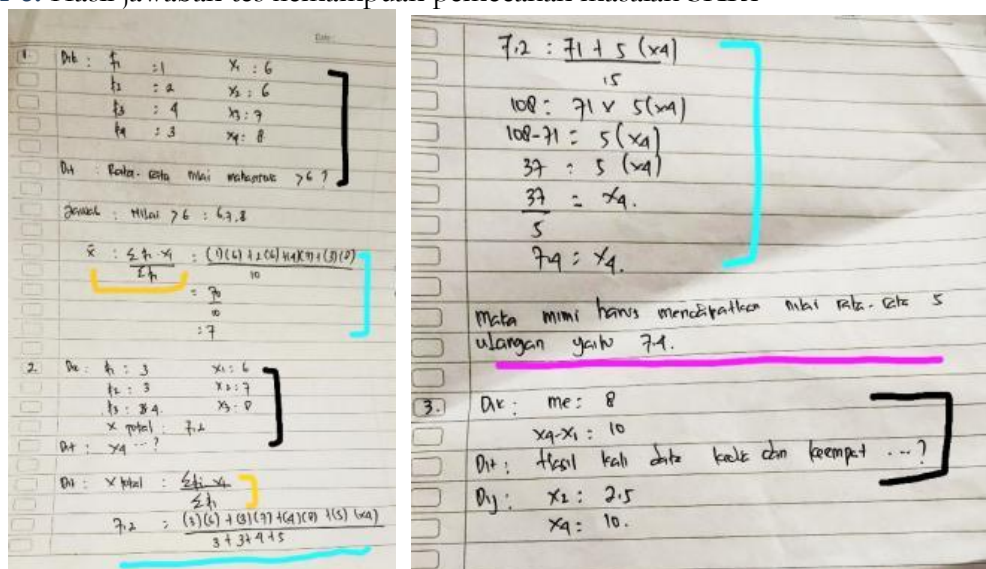 Hasil jawaban tes kemampuan pemecahan masalah
1. Dik : f1 : 1 x1 : 6
f2 : 2 x2 : 6
f3 : 4 x3 : 7
f4 : 3 x4 : 8
Dit : Rata-rata nilai >6 ?
Jawab : Nilai >6 : 6,7,8
x̄ : Σfi xi / Σfi : (1)(6)+2(6)+(4)(7)+(3)(8) / 10
= 70 / 10
: 7
2. f1 : 3 x1 : 6
f2 : 3 x2 : 7
x3 : 8
x total : 7,2
Dit : x4 ... ?
x total : Σfi xi / Σfi
7,2 : (3)(6) + (3)(7) + (4)(8) + (5)(x4) / 3+3+4+5
7,2 : 71 + 5 (x4) / 15
108 : 71 + 5(x4)
108-71 : 5(x4)
37 : 5 (x4)
37 / 5 = x4.
7,4 : x4.
maka mimi harus mendapatkan nilai rata-rata 5
ulangan yaitu 7,4.
3. Dik : me : 8
x4-x1 : 10
Dit : Hasil kali data dan keempat ... ?
Dij : x2 : 2.5
x4 : 10.